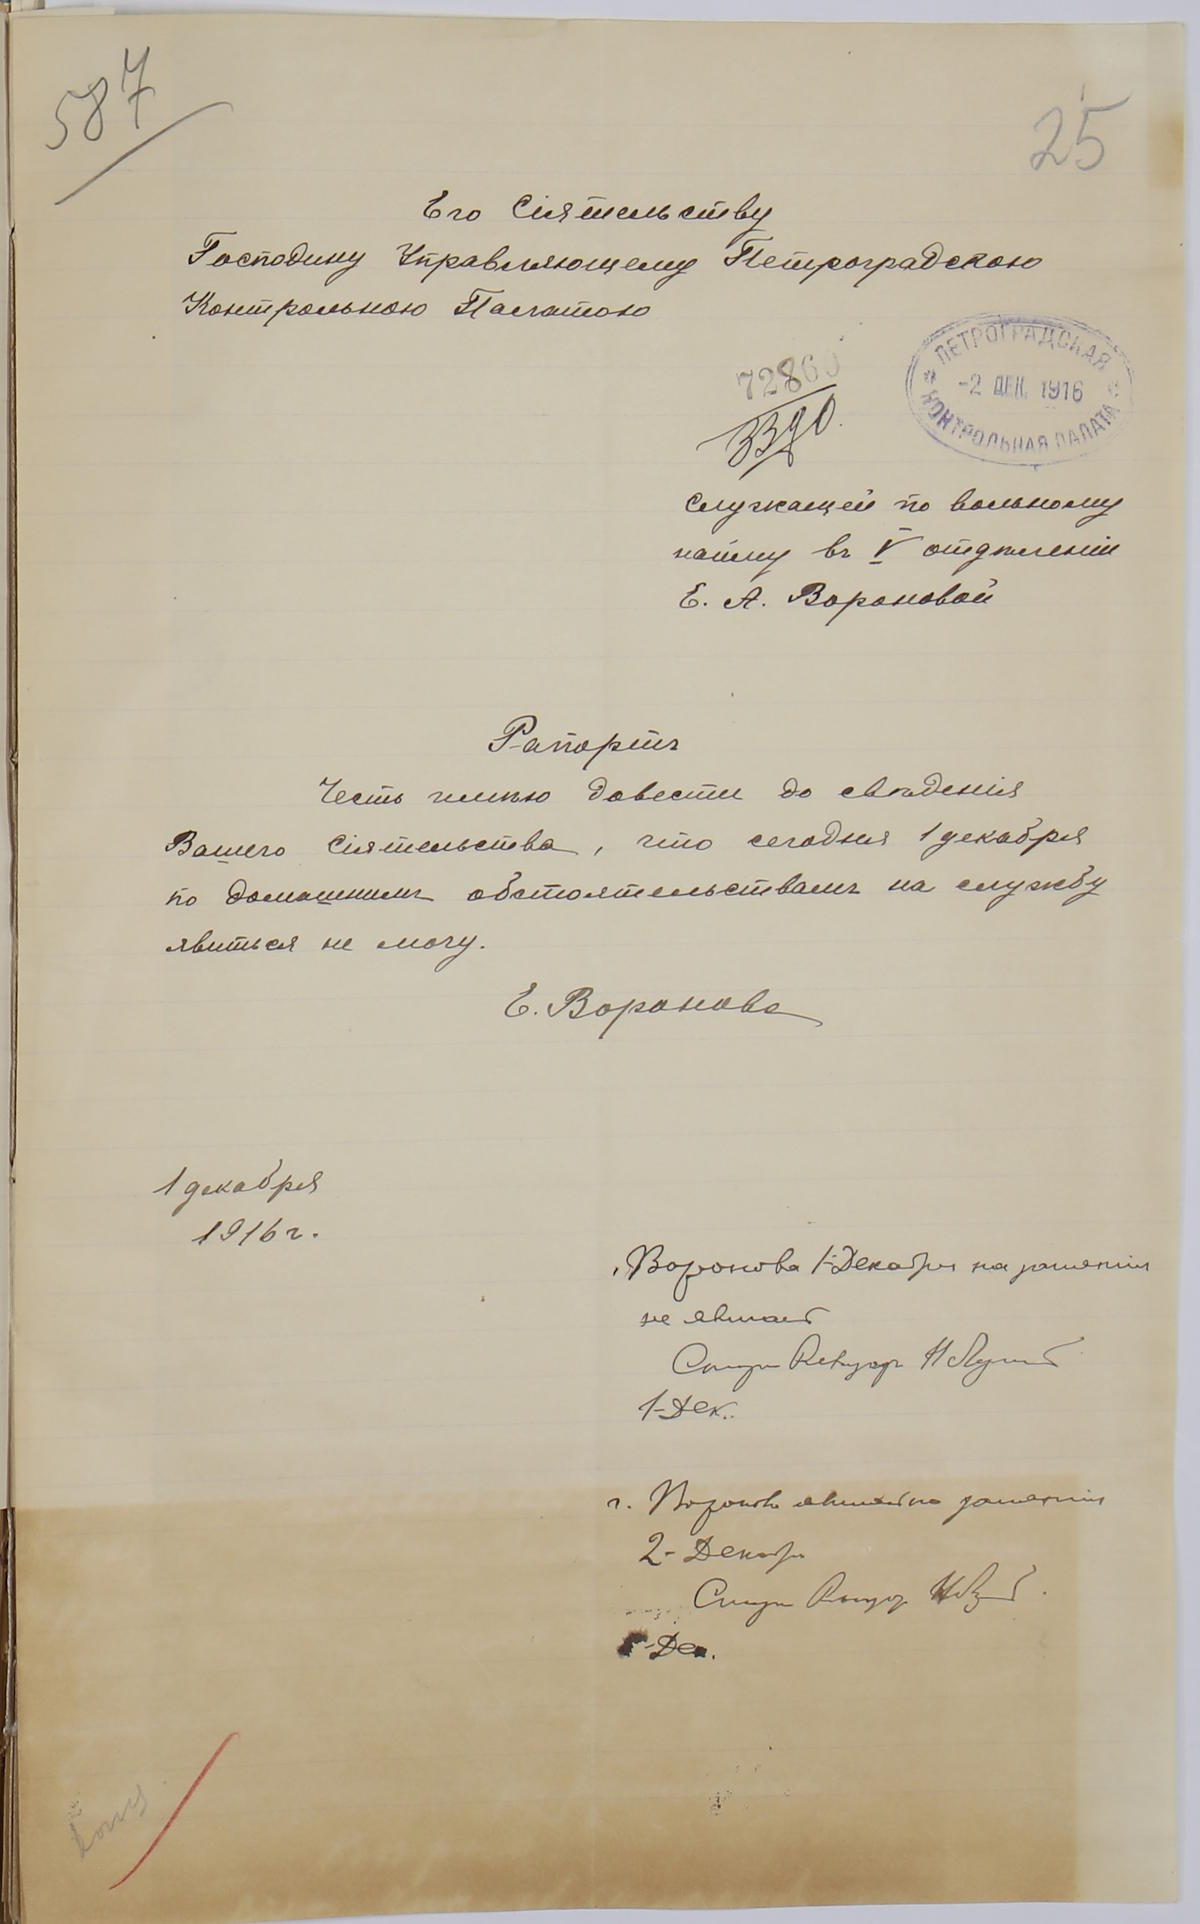 587
25
Его Сіятельству
Господину Управляющему Петроградскою
Контрольною Палатою
72860
3390.
ПЕТРОГРАДСКАЯ
-2 ДЕК. 1916
КОНТРОЛЬНАЯ ПАЛАТА
Служащей по вольному
найму въ V отдѣленіи
Е. А. Вороновой
Рапортъ
Честь имѣю довести до свѣдѣнія
Вашего Сіятельства, что сегодня 1 декабря
по домашнимъ обстоятельствамъ на службу
явиться не могу.
Е. Воронова
1 декабря
1916 г.
Воронова 1-Декабря на занятія
не
Ревизоръ
1-Дек..
г. Воронова занятія
2-Декабря
-Дек.